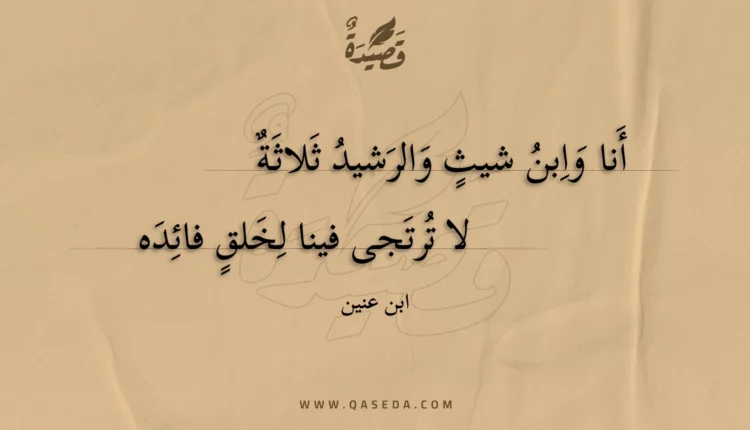 قَصِيْدَةٌ
أَنا وَاِبنُ شيثٍ وَالرَشيدُ ثَلاثَةٌ
لا تُرتَجى فينا لِخَلقٍ فائِدَه
ابن عنين
WWW.QASEDA.COM